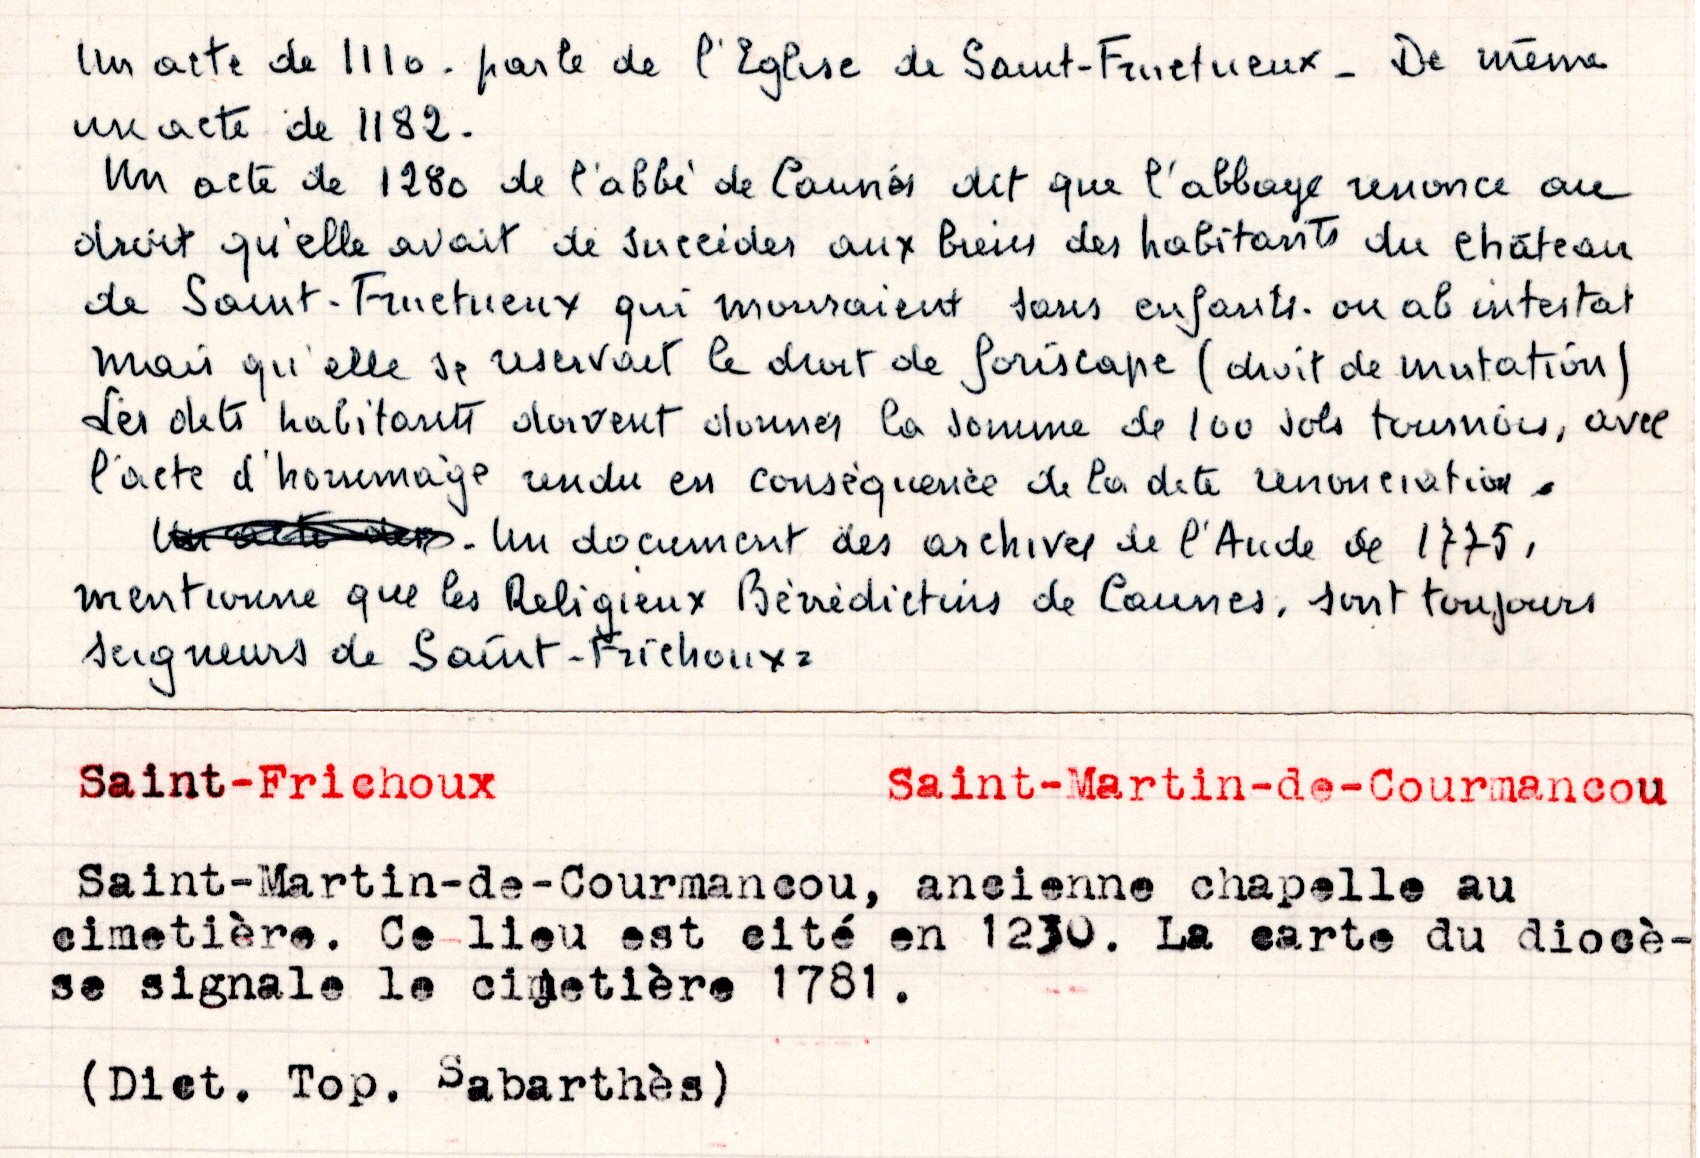 Un acte de 1110. parle de l'Eglise de Saint-Fructueux - De même
un acte de 1182.
Un acte de 1280 de l'abbé de Caunes dit que l'abbaye renonce au
droit qu'elle avait de succéder aux biens des habitants du château
de Saint-Fructueux qui mouraient sans enfants. ou ab intestat
mais qu'elle se reservait le droit de foriscape (droit de mutation)
Les dits habitants doivent donner la somme de 100 sols tournois, avec
l'acte d'hommage rendu en conséquence de la dite renonciation.
. Un document des archives de l'Aude de 1775,
mentionne que les Religieux Bénédictins de Caunes, sont toujours
seigneurs de Saint-Frichoux=
Saint-Frichoux Saint-Martin-de-Courmancou
Saint-Martin-de-Courmancou, ancienne chapelle au
cimetière. Ce lieu est cité en 1230. La carte du diocè-
se signale le cimetière 1781.
(Dict. Top. Sabarthès)